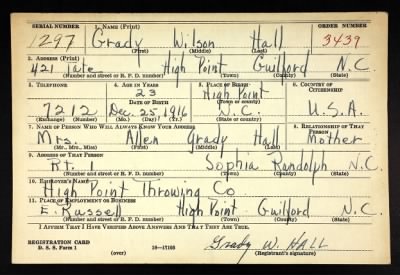 SERIAL NUMBER 1. NAME (Print) ORDER NUMBER
1297 Grady Wilson Hall 3439
(First) (Middle) (Last)
2. ADDRESS (Print)
421 Tate High Point Guilford N.C.
(Number and street or R. F. D. number) (Town) (County) (State)
3. TELEPHONE 4. AGE IN YEARS 5. PLACE OF BIRTH 6. COUNTRY OF CITIZENSHIP
23 High Point
DATE OF BIRTH (Town or county)
7212 Dec. 25, 1916 N.C. U.S.A.
(Exchange) (Number) (Mo.) (Day) (Yr.) (State or country)
7. NAME OF PERSON WHO WILL ALWAYS KNOW YOUR ADDRESS 8. RELATIONSHIP OF THAT PERSON
Mrs. Allen Grady Hall Mother
(Mr., Mrs., Miss) (First) (Middle) (Last)
9. ADDRESS OF THAT PERSON
Rt. 1 Sophia Randolph N.C.
(Number and street or R. F. D. number) (Town) (County) (State)
10. EMPLOYER'S NAME
High Point Throwing Co
11. PLACE OF EMPLOYMENT OR BUSINESS
E. Russell High Point Guilford N.C.
(Number and street or R. F. D. number) (Town) (County) (State)
I AFFIRM THAT I HAVE VERIFIED ABOVE ANSWERS AND THAT THEY ARE TRUE.
REGISTRATION CARD
D. S. S. Form 1 (over) 16-17105 Grady W. HALL
(Registrant's signature)